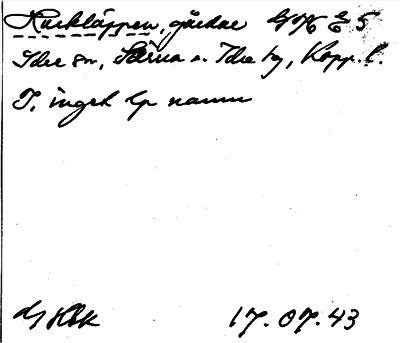 Kurkläppen, gårdar GVK E 5
Idre sn, Särna o. Idre tg, Kopp. l.
T. inget lp namn
17.07.43